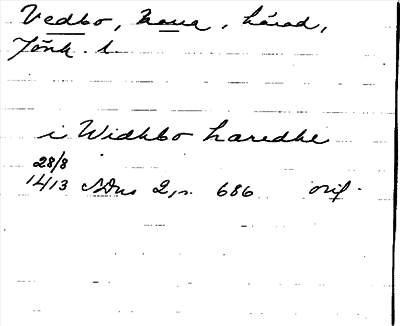 Vedbo, Norra, härad,
Jönk. l.
i Widhbo haredhe
28/8
1413 SDns 2, s. 686 orig.